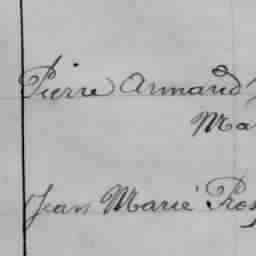 Pierre Armand
Ma
Jean Marie Pros